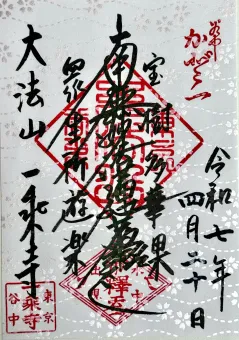 令和七年
四月二十日
宝樹多華果
南無妙法蓮華経
衆生所遊楽
大法山 一乗寺
東京
一乗寺
谷中